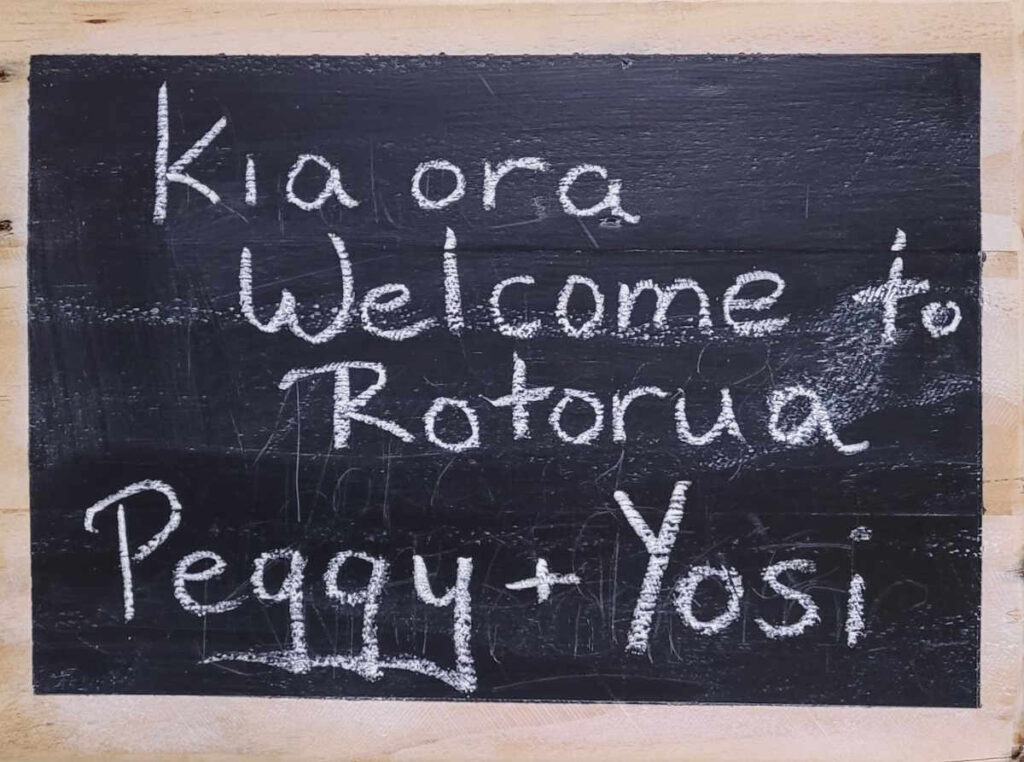 Kia ora
Welcome to
Rotorua
Peggy + Yosi